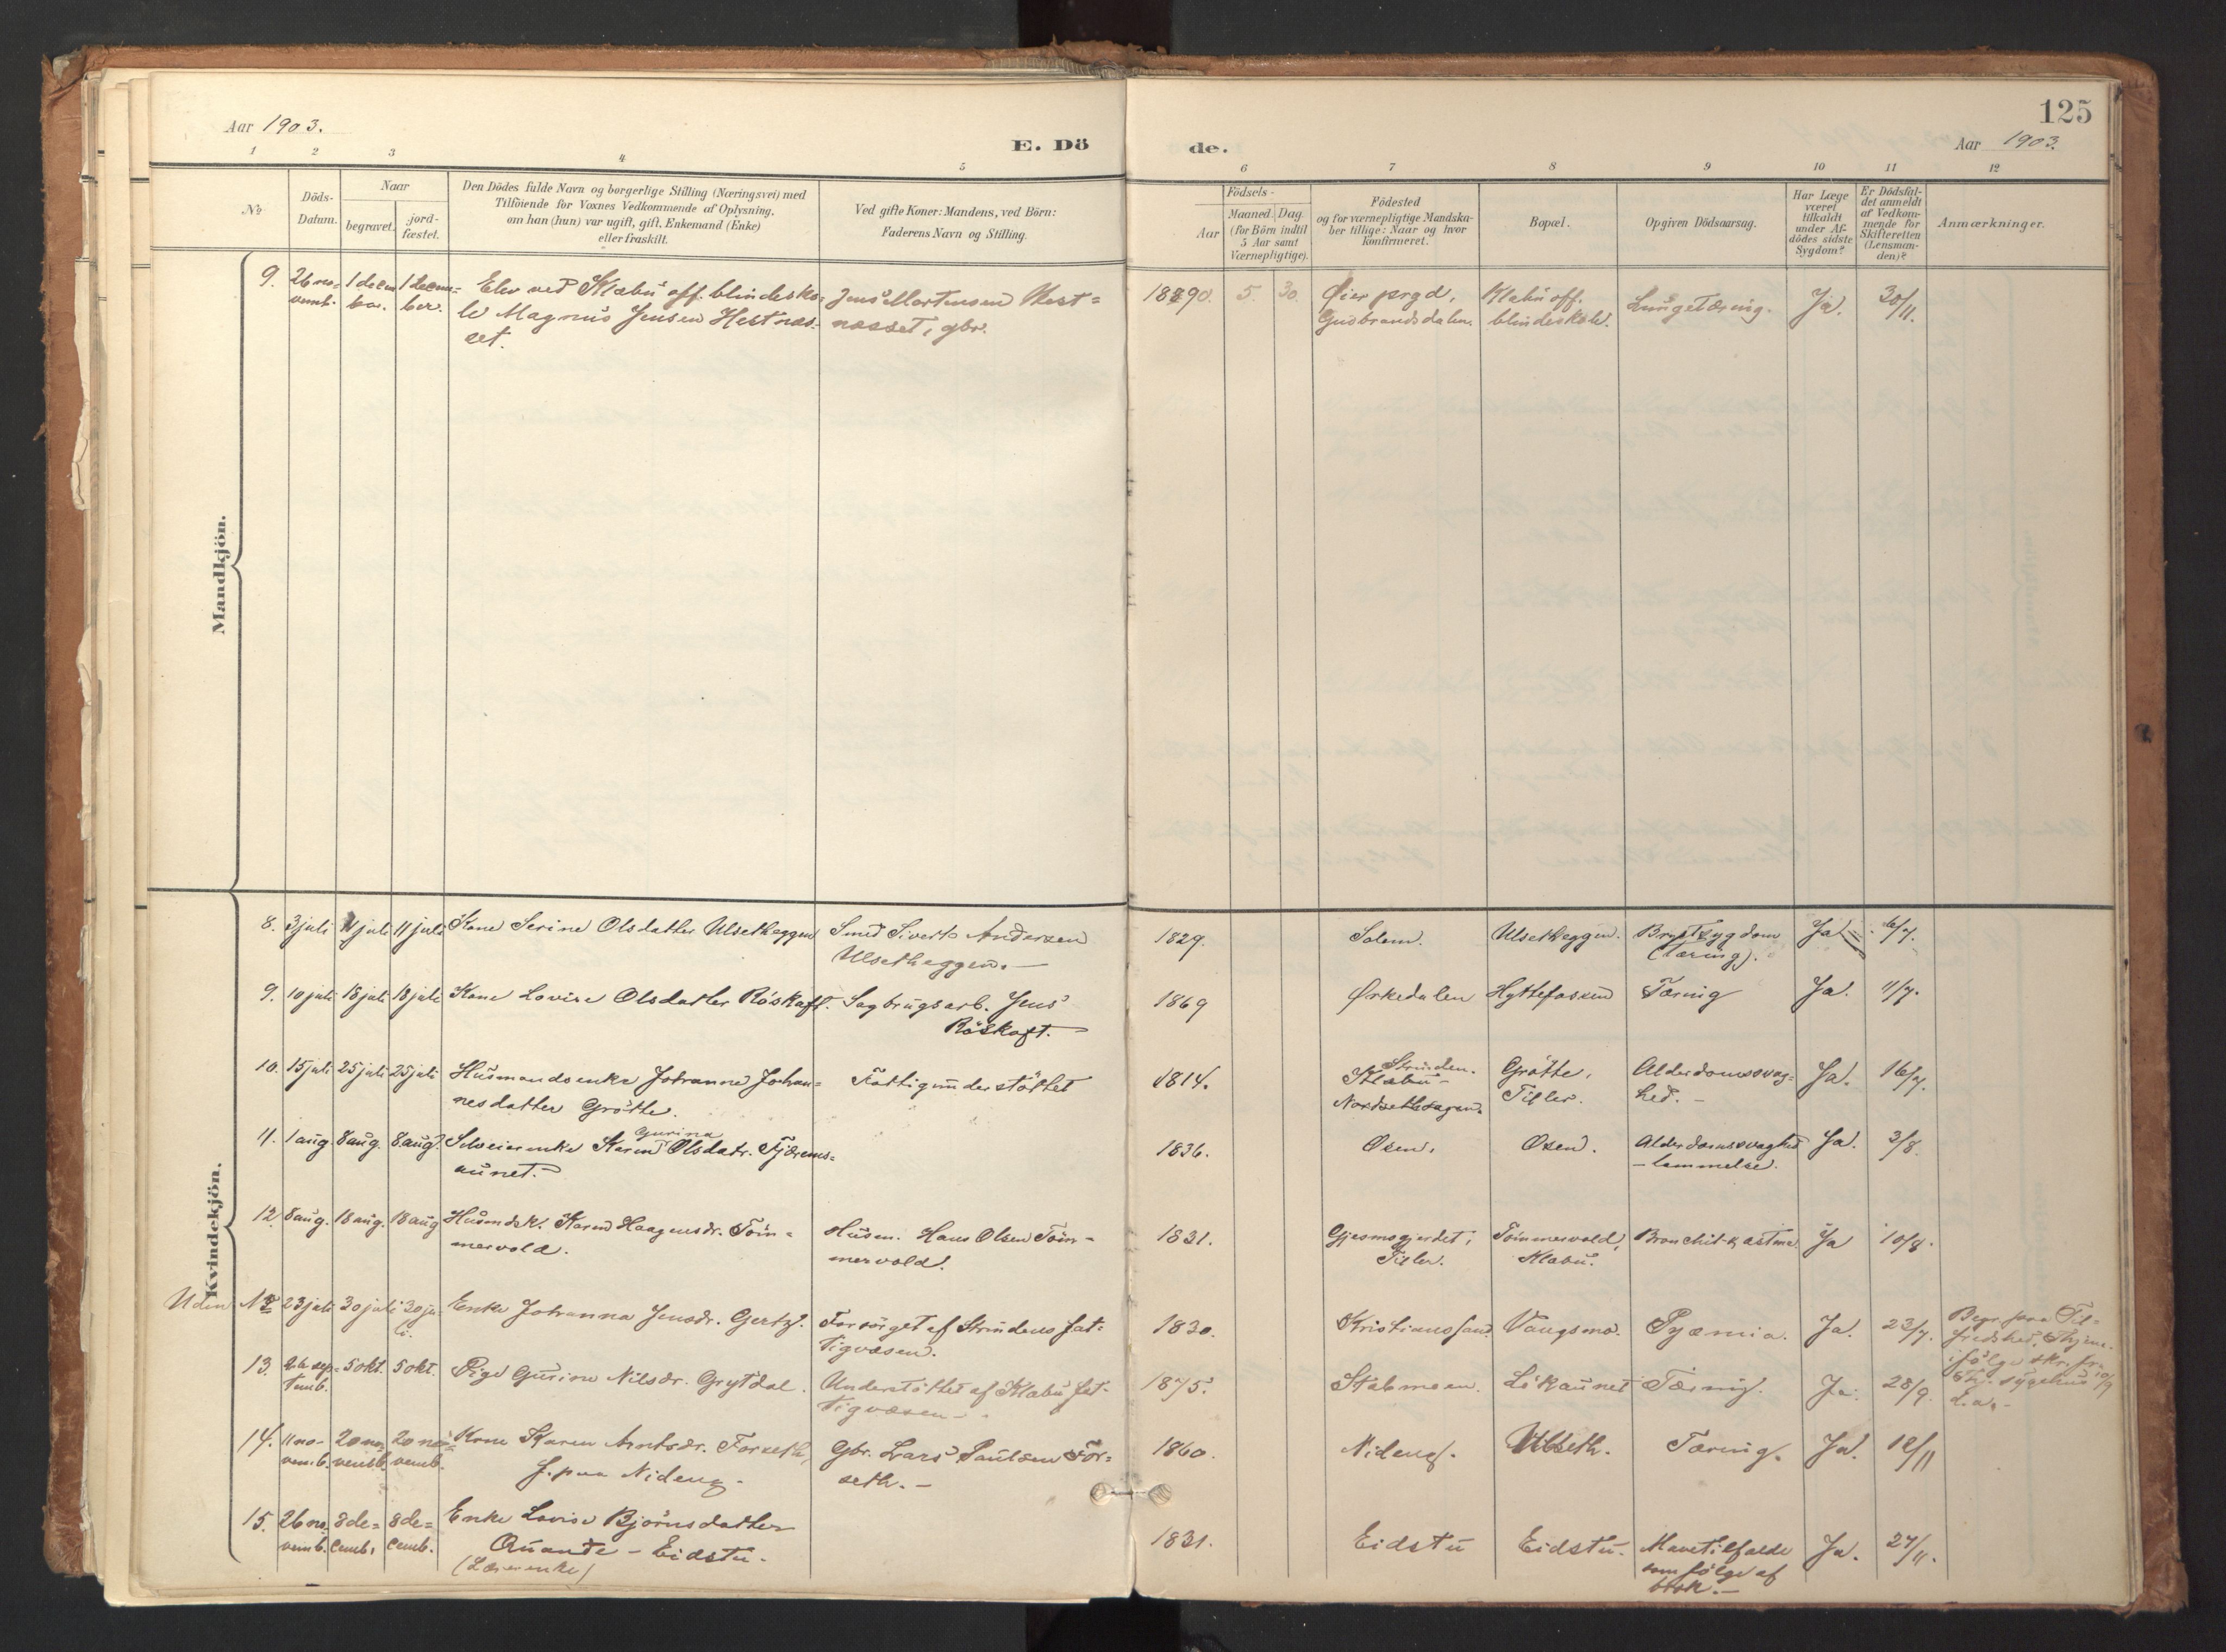 125
Aar 1903.
E. Dö
de.
Aar 1903.
1 2 3 4 5 6 7 8 9 10 11 12
No
Döds-
Datum.
Naar
begravet.
jord-
fæstet.
Den Dödes fulde Navn og borgerlige Stilling (Næringsvei) med
Tilföiende for Voxnes Vedkommende af Oplysning,
om han (hun) var ugift, gift, Enkemand (Enke)
eller fraskilt.
Ved gifte Koner: Mandens, ved Börn:
Faderens Navn og Stilling.
Födsels-
Aar
Maaned. Dag.
(for Börn indtil
5 Aar samt
Værnepligtige).
Födested
og for værnepligtige Mandska-
ber tillige: Naar og hvor
konfirmeret.
Bopæl.
Opgiven Dödsaarsag.
Har Læge
været
tilkaldt
under Af-
dödes sidste
Sygdom?
Er Dödsfal-
det anmeldt
af Vedkom-
mende for
Skifteretten
(Lensman-
den)?
Anmærkninger.
Mandkjön.
9.
26 no-
vemb.
1 decem
ber.
1 decem=
ber.
Elev ved Klæbu off. blindesko-
le Magnus Jensen Hestnæs-
set.
Jens Martinsen Hest=
næsset, gbr.
1890.
5.
30.
Øier prgd,
Gudbrandsdalen.
Klæbu off.
blindeskole.
Lungetæring.
Ja.
30/11.
Kvindekjön.
8.
3 juli
11 juli
11 juli
Kone Serine Olsdatter Ulsetheggen
Smed Sivert Andersen
Ulsetheggen.—
1829.
Solem.
Ulsetheggen.
Brystsygdom
(tæring).
Ja.
6/7.
9.
10 juli
18 juli
18 juli
Kone Lovise Olsdatter Röskaft.
Sagbrugsarb. Jens
Röskaft.—
1869
Ørkedalen
Hyttefossen
Tæring
Ja.
11/7.
10.
15 juli
25 juli
25 juli
Husmandsenke Johanna Johan=
nesdatter Grötte.
Fattigunderstöttet
1814.
Strinden.
Klæbu-
Nordsethsagen.
Grötte,
Tiller.
Alderdomssvag=
hed.—
Ja.
16/7.
11.
1 aug.
8 aug.
8 aug.
Gurina
Selveierenke Karen Olsdatr. Fjærems=
aunet.—
1836.
Osen.
Osen.
Alderdomssvaghed
– lammelse.
Ja.
3/8.
12.
8 aug.
18 aug.
18 aug
Husmdsk. Karen Haagensdr. Töm-
mervold.
Husm. Hans Olsen Töm-
mervold.
1831.
Gjesmogjerdet,
Tiller.
Tömmervold,
Klæbu.
Bronchit & astma
Ja
10/8.
Uden No
23 juli
30 juli
30 ju-
li.
Enke Johanna Jensdr. Gertz.
Forsörget af Strindens fat=
tigvæsen.
1830.
Kristianssand.
Vaugsmo.
Pyæmia.
Ja.
23/7.
13.
26 sep-
temb.
5 okt.
5 okt.
Pige Gurine Nilsdr. Grytdal.
Understöttet af Klæbu fat-
tigvæsen—
1875.
Skabmoen.
Lökaunet
Tæring.
Ja.
28/9.
14.
11 no-
vemb.
20 no-
vemb.
20 no-
vemb.
Kone Karen Arntsdr. Forseth,
f. paa Nideng.
Gbr. Lars Paulsen For=
seth.—
1860.
Nideng.
Ulseth.
Tæring.
Ja.
12/11
15.
26 no-
vemb.
8 de=
cemb.
8 de=
cemb.
Enke Lovise Björnsdatter
Quante – Eidstu.
(Lærerenke)
1831.
Eidstu
Eidstu.
Mavetilfælde
som fölge af
brok.—
Ja.
27/11.